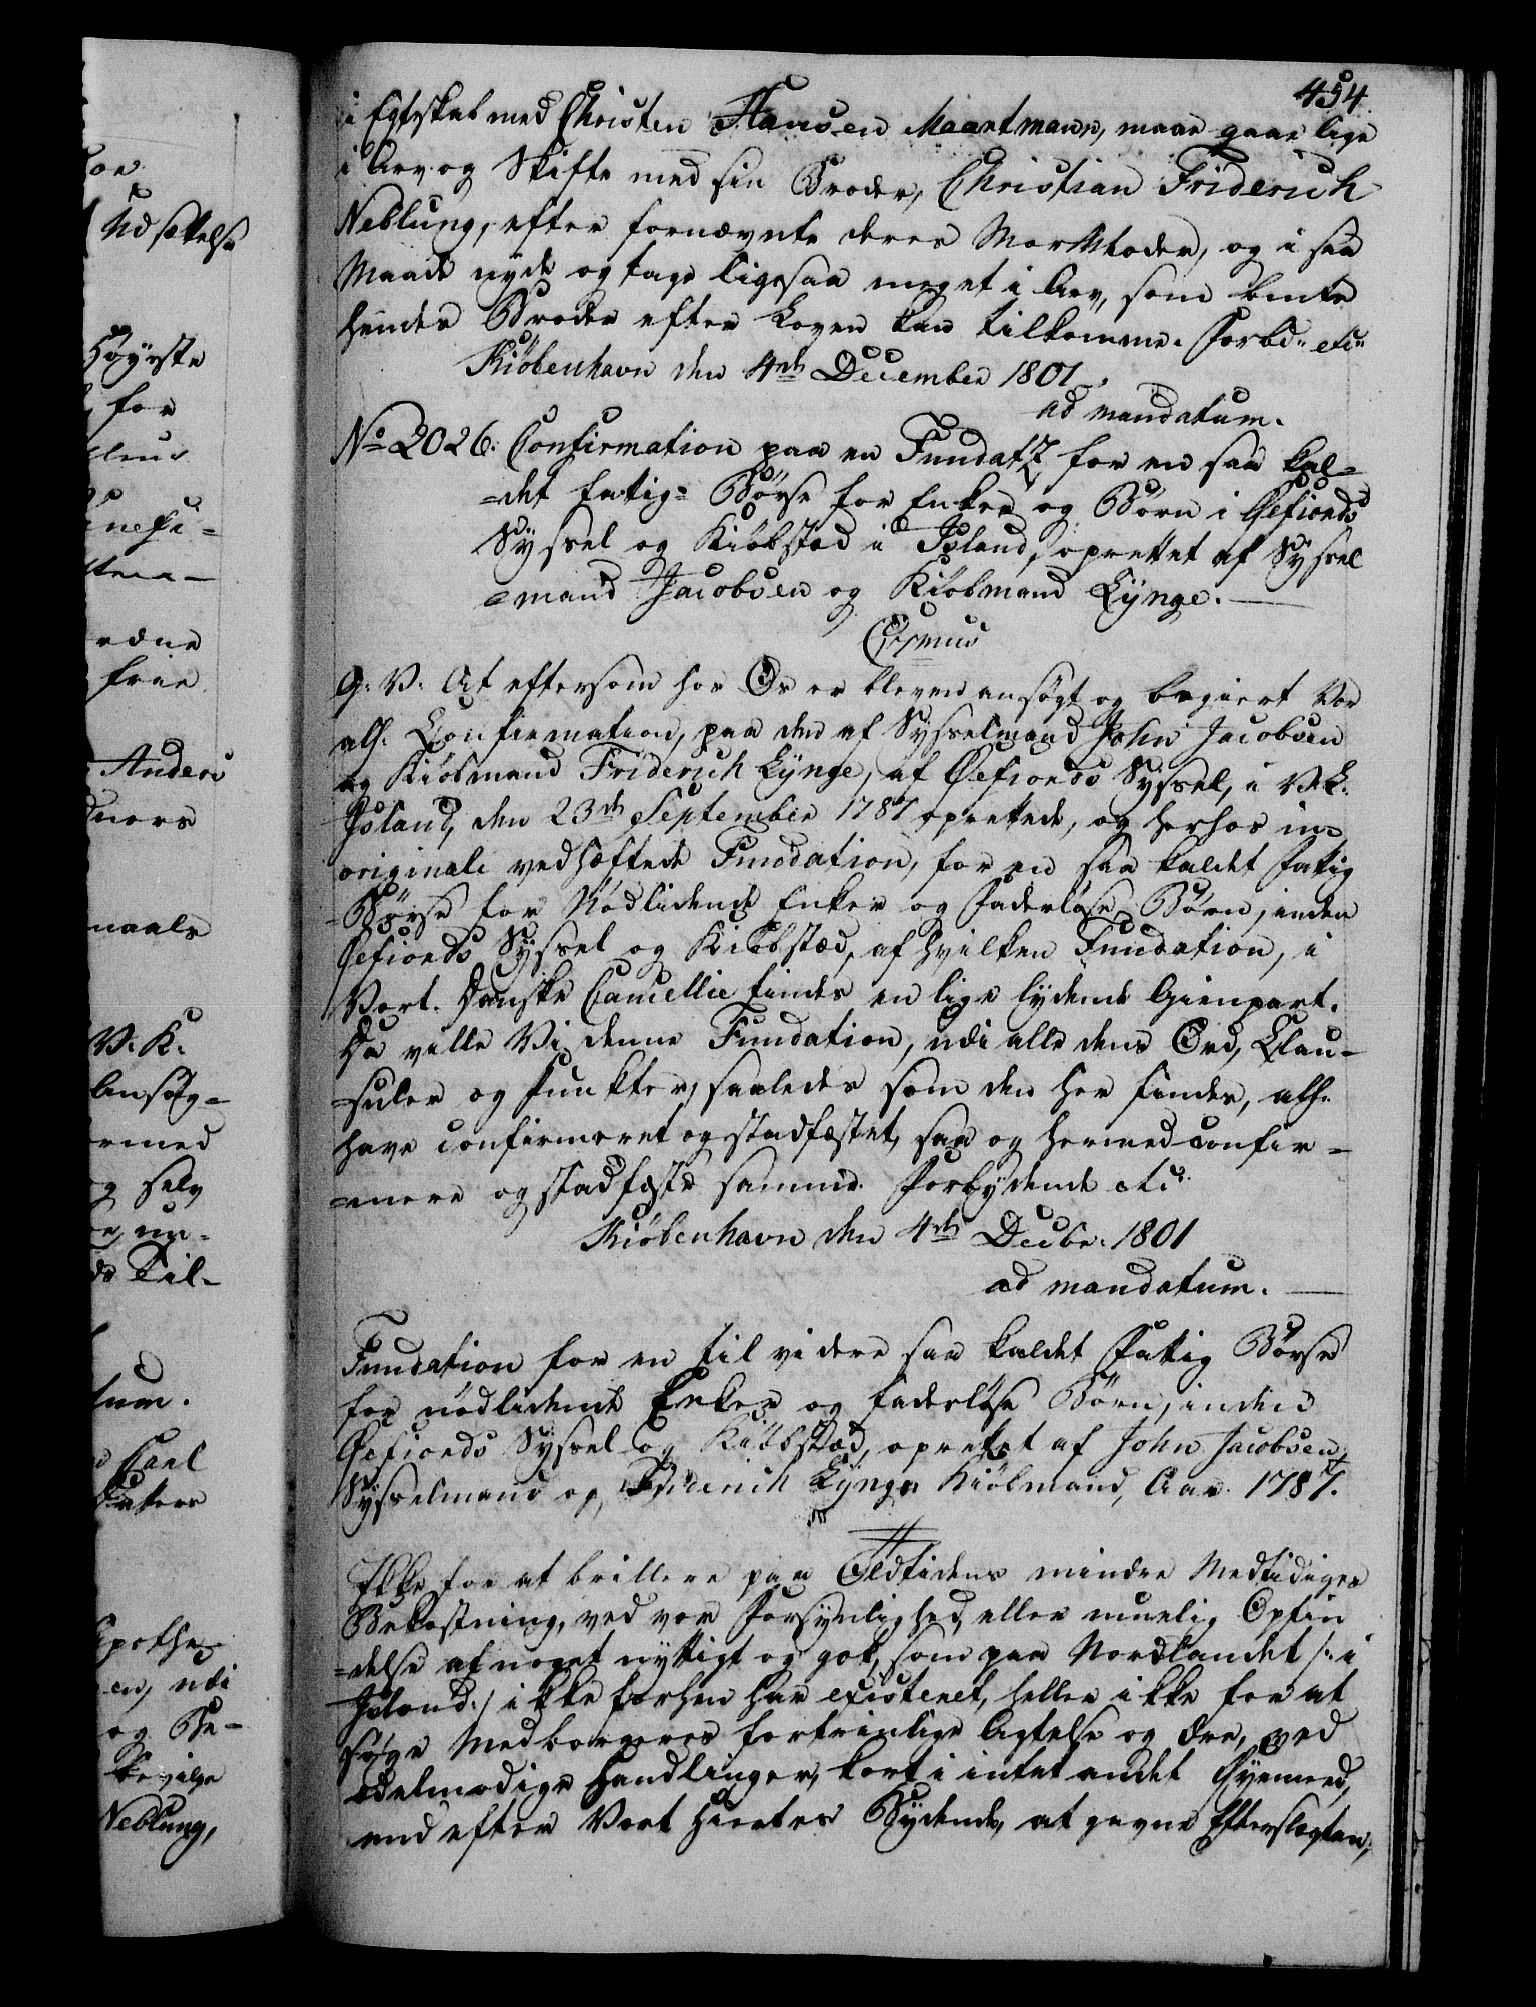 454.
i Egteskab med Christen Hansen Maartmann, maae gaae lige
i Arv og Skifte med sin Broder, Christian Friderich
Neblung, efter fornævnte deres MorModer, og i saa
Maade nyde og tage ligesaa meget i Arv, som bemte
hendes Broder efter Loven kan tilkomme. Forbd: etc:
Kiöbenhavn den 4de December 1801.
ad mandatum.
No 2026. Confirmation paa en Fundatz for en saa kal-
-det fatig- Börse for Enker og Börn i Öefiords
Syssel og Kiöbstæd i Island, oprettet af Syssel
-mand Jacobsen og Kiöbmand Lynge.
C: 7mus
G: V: At eftersom hos Os er bleven ansögt og begiert Vor
allh: Confirmation, paa den af Sysselmand John Jacobsen
og Kiöbmand Friderich Lynge, af Öefiords Syssel, i V: L:
Island, den 23de September 1787 oprettede, og herhos in
originali vedhæftede Fundation, for en saa kaldet fatig
-Börse for Nödlidende Enker og Faderlöse Börn, inden
Öefiords Syssel og Kiöbstæd, af hvilken Fundation, i
Vort Danske Cancellie findes en lige lydende Gienpart.
Da ville Vi denne Fundation, udi alle dens Ord, Clau-
-suler og Punkter, saaledes som den her findes, allh:
have confirmeret og stadfæstet, saa og hermed confir-
-mere og stadfæste samme. Forbydende etc:
Kiöbenhavn den 4de Decbr: 1801
ad mandatum.
Fundation for en til videre saa kaldet Fatig Börse
for nödlidende Enker og faderlöse Börn, inden
Öefiords Syssel og Kiöbstæd, oprettet af John Jacobsen
Sysselmand og Friderich Lynge Kiöbmand, Aar 1787.
Ikke for at brillere paa Oldtidens mindre Medtidiges
Bekostning, ved vor Forsynlighed, eller muelig Opfin
-delse af noget nyttigt og got, som paa Nordlandet /: i
Island :/ ikke forhen har existeret, heller ikke for at
söge Medborgeres fortrinlige Agtelse og Ære, ved
ædelmodige Handlinger, kort i intet andet Öyemeed,
end efter Vort Hiertes Bydende, at gavne Efterslægten,